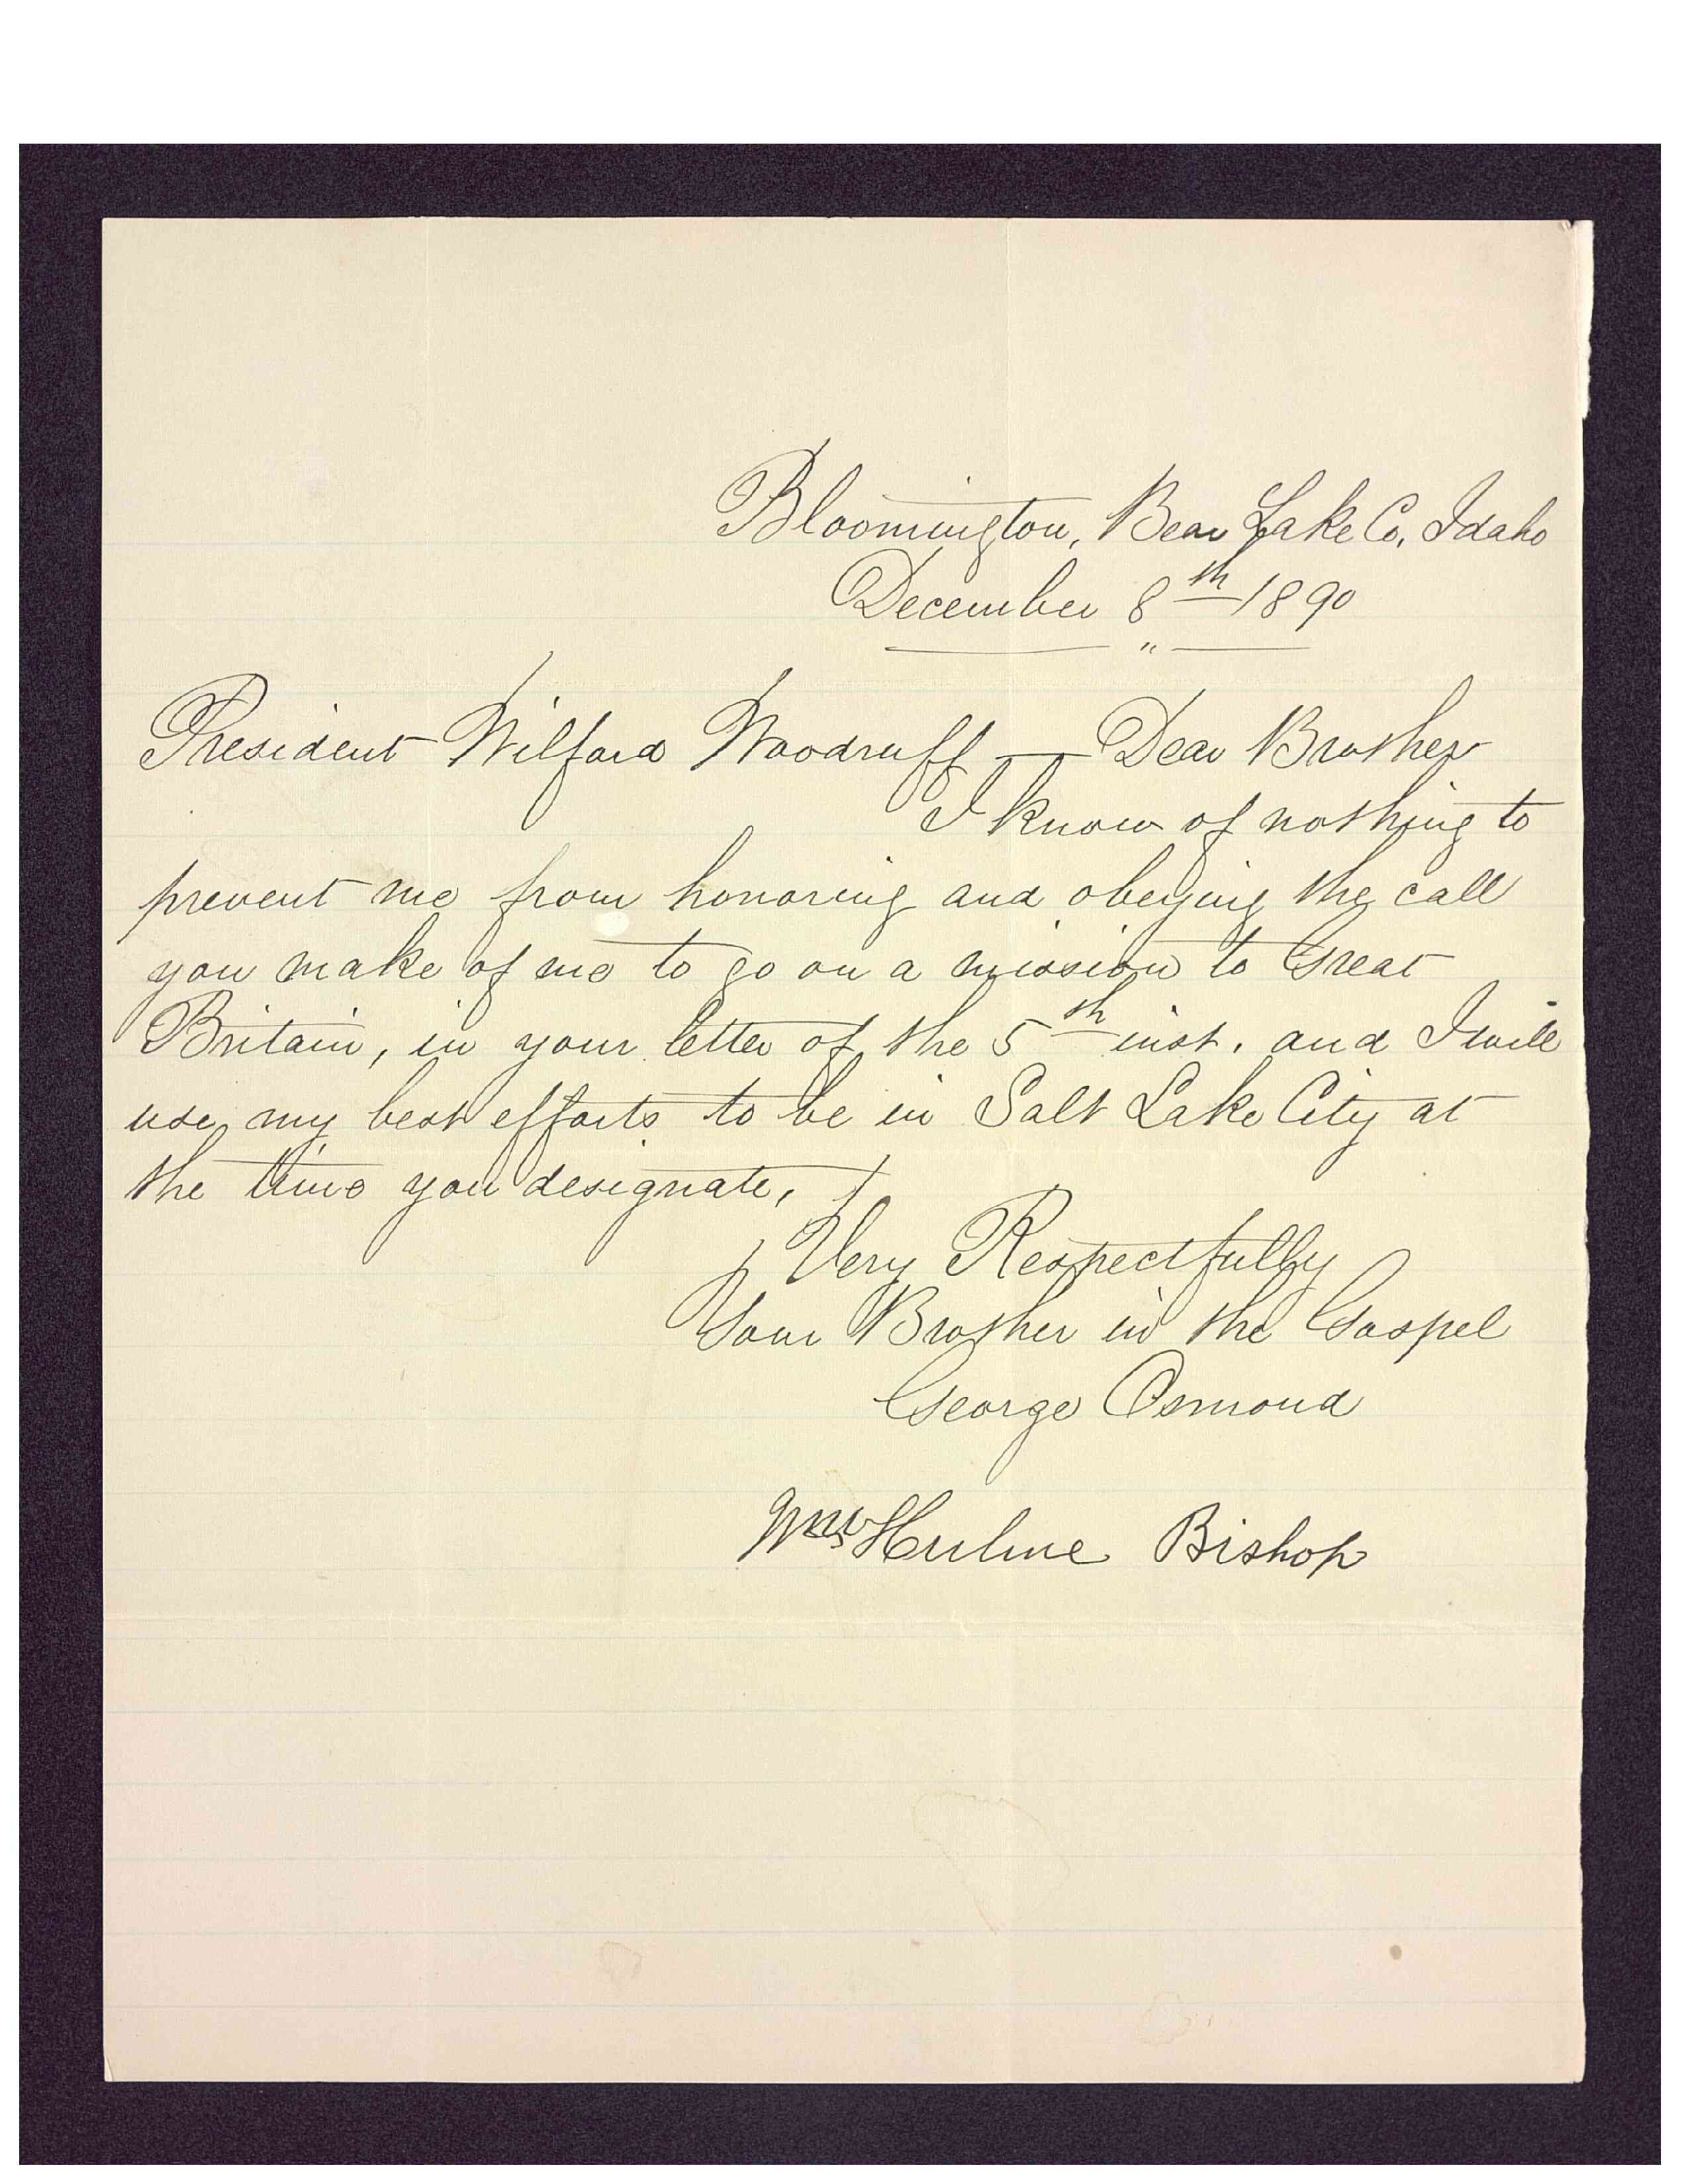 Bloomington, Bear Lake Co, Idaho
December 8th 1890
"
President Wilford Woodruff — Dear Brother
I know of nothing to
prevent me from honoring and obeying the call
you make of me to go on a mission to Great
Britain, in your letter of the 5th inst. and I will
use my best efforts to be in Salt Lake City at
the time you designate,
Very Respectfully
Your Brother in the Gospel
George Osmond
Wm Hulme Bishop